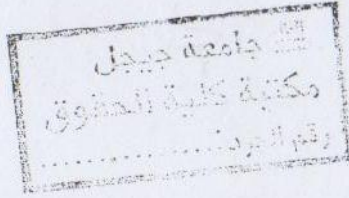 جامعة جيجل
مكتبة كلية الحقوق
رقم الجرد:...............